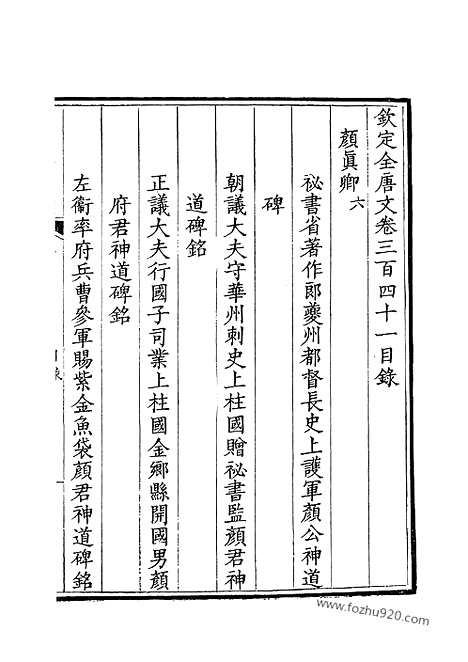 欽定全唐文卷三百四十一目錄
顏眞卿 六
祕書省著作郎夔州都督長史上護軍顏公神道
碑
朝議大夫守華州刺史上柱國贈祕書監顏君神
道碑銘
正議大夫行國子司業上柱國金鄉縣開國男顏
府君神道碑銘
左衞率府兵曹參軍賜紫金魚袋顏君神道碑銘
www.fozhu920.com